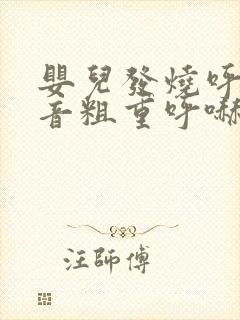 嬰兒發燒呼
音粗重呼嚇
汪師傅